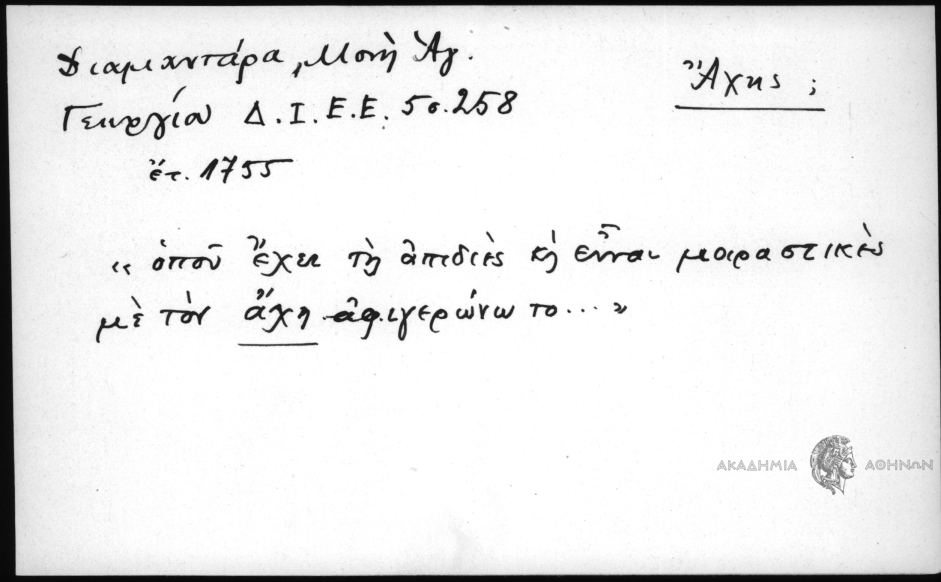 Διαμαντάρα, Μονὴ Ἁγ.
Γεωργίου Δ.Ι.Ε.Ε. 5 σ. 258
ἔτ. 1755
Ἄχης ;
« ὁποῦ ἔχει τὴ ἀπιδιὲς κὴ εἶναι μοιραστικὲς
μὲ τὸν ἄχη ἀφιγερώνω το... »
ΑΚΑΔΗΜΙΑ ΑΘΗΝΩΝ